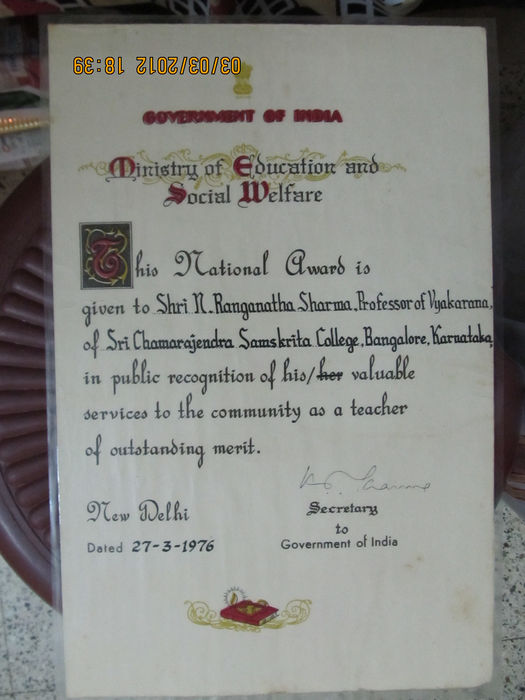 03/03/2012 18:39
GOVERNMENT OF INDIA
Ministry of Education and
Social Welfare
This National Award is
given to Shri N. Ranganatha Sharma, Professor of Vyakarana,
of Sri Chamarajendra Samskrita College, Bangalore, Karnataka,
in public recognition of his/her valuable
services to the community as a teacher
of outstanding merit.
New Delhi
Secretary
to
Dated 27-3-1976
Government of India